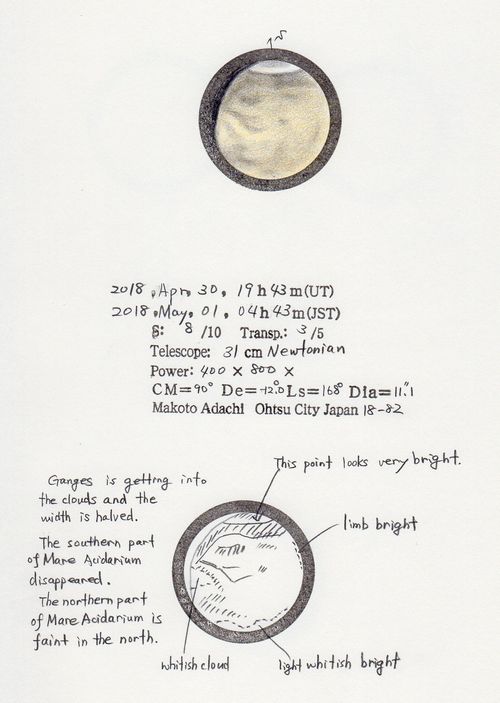 S
2018, Apr, 30, 19h43m(UT)
2018, May, 01, 04h43m(JST)
S: 8/10 Transp.: 3/5
Telescope: 31 cm Newtonian
Power: 400 × 800 ×
CM=90° De=-12.°0 Ls=168° Dia=11."1
Makoto Adachi Ohtsu City Japan 18-82
This point looks very bright.
Ganges is getting into
the clouds and the
width is halved.
limb bright
The southern part
of Mare Acidarium
disappeared.
The northern part
of Mare Acidarium is
faint in the north.
whitish cloud
light whitish bright